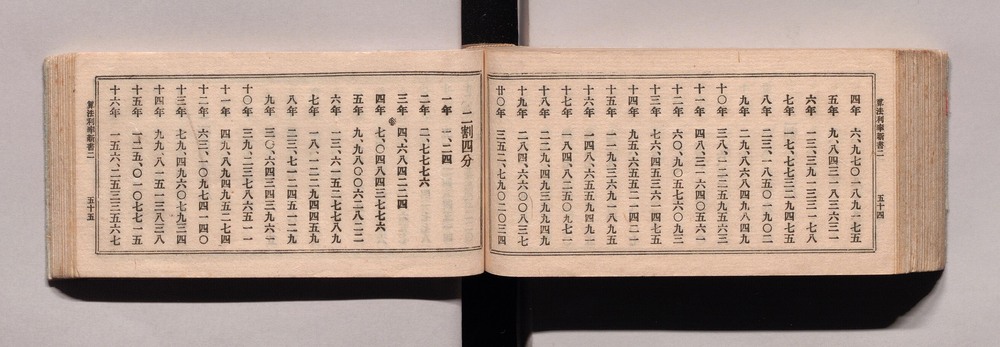 算法利率新書二
五十四
四年　六、九七〇一八九一七五
五年　九、八四三一八三六三一
六年　一三、三九一三三一七八
七年　一七、七七三二九四七五
八年　二三、一八五〇一九〇二
九年　二九、八六八四九八四九
十〇年　三八、一二二五九五六三
十一年　四八、三一六四〇五六一
十二年　六〇、九〇五七六〇九三
十三年　七六、四五三六一四七五
十四年　九五、六五五二一四二一
十五年　一一九、三六九一八九五
十六年　一四八、六五五九四九一
十七年　一八四、八二五〇九七一
十八年　二二九、四九三九九四九
十九年　二八四、六六〇〇八三七
廿〇年　三五二、七九〇二〇三四
二割四分
一年　一、二四
二年　二、七七七六
三年　四、六八四二二四
四年　七、〇四八四三七七六
五年　九、九八〇〇六二八二二
六年　一三、六一五二七七八九
七年　一八、一二二九四四五九
八年　二三、七一二四五一二九
九年　三〇、六四三四三九六一
十〇年　三九、二三七八六五一一
十一年　四九、八九四九五二七四
十二年　六三、一〇九七四一四〇
十三年　七九、四九六〇七九三四
十四年　九九、八一五一三八三八
十五年　一二五、〇一〇七七一五
十六年　一五六、二五三三五六七
算法利率新書二
五十五